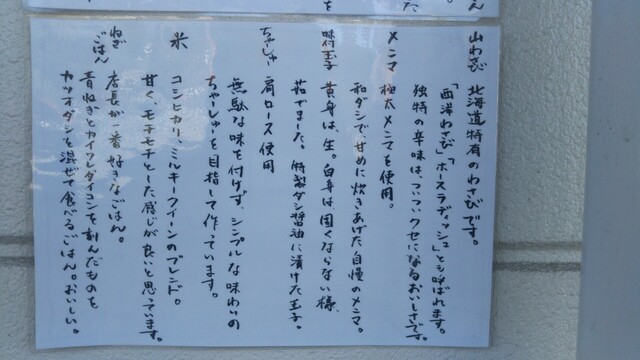 山わさび 北海道特有のわさびです。
「西洋わさび」「ホースラディッシュ」とも呼ばれます。
独特の辛味は、ついついクセになるおいしさです。
メンマ 極太メンマを使用。
和ダシで甘めに炊きあげた自慢のメンマ。
味付玉子 黄身は生。白身は固くならない様、
茹でました。特製ダシ醤油に漬けた玉子。
ちゃーしゅー 肩ロース使用
無駄な味を付けず、シンプルな味わいの
ちゃーしゅーを目指して作っています。
米 コシヒカリ、ミルキークイーンのブレンド。
甘く、モチモチとした感じが良いと思っています。
ねぎごはん 店長が一番好きなごはん。
青ねぎとカイワレダイコンを刻んだものを
カツオダシを混ぜて食べるごはん。おいしい。